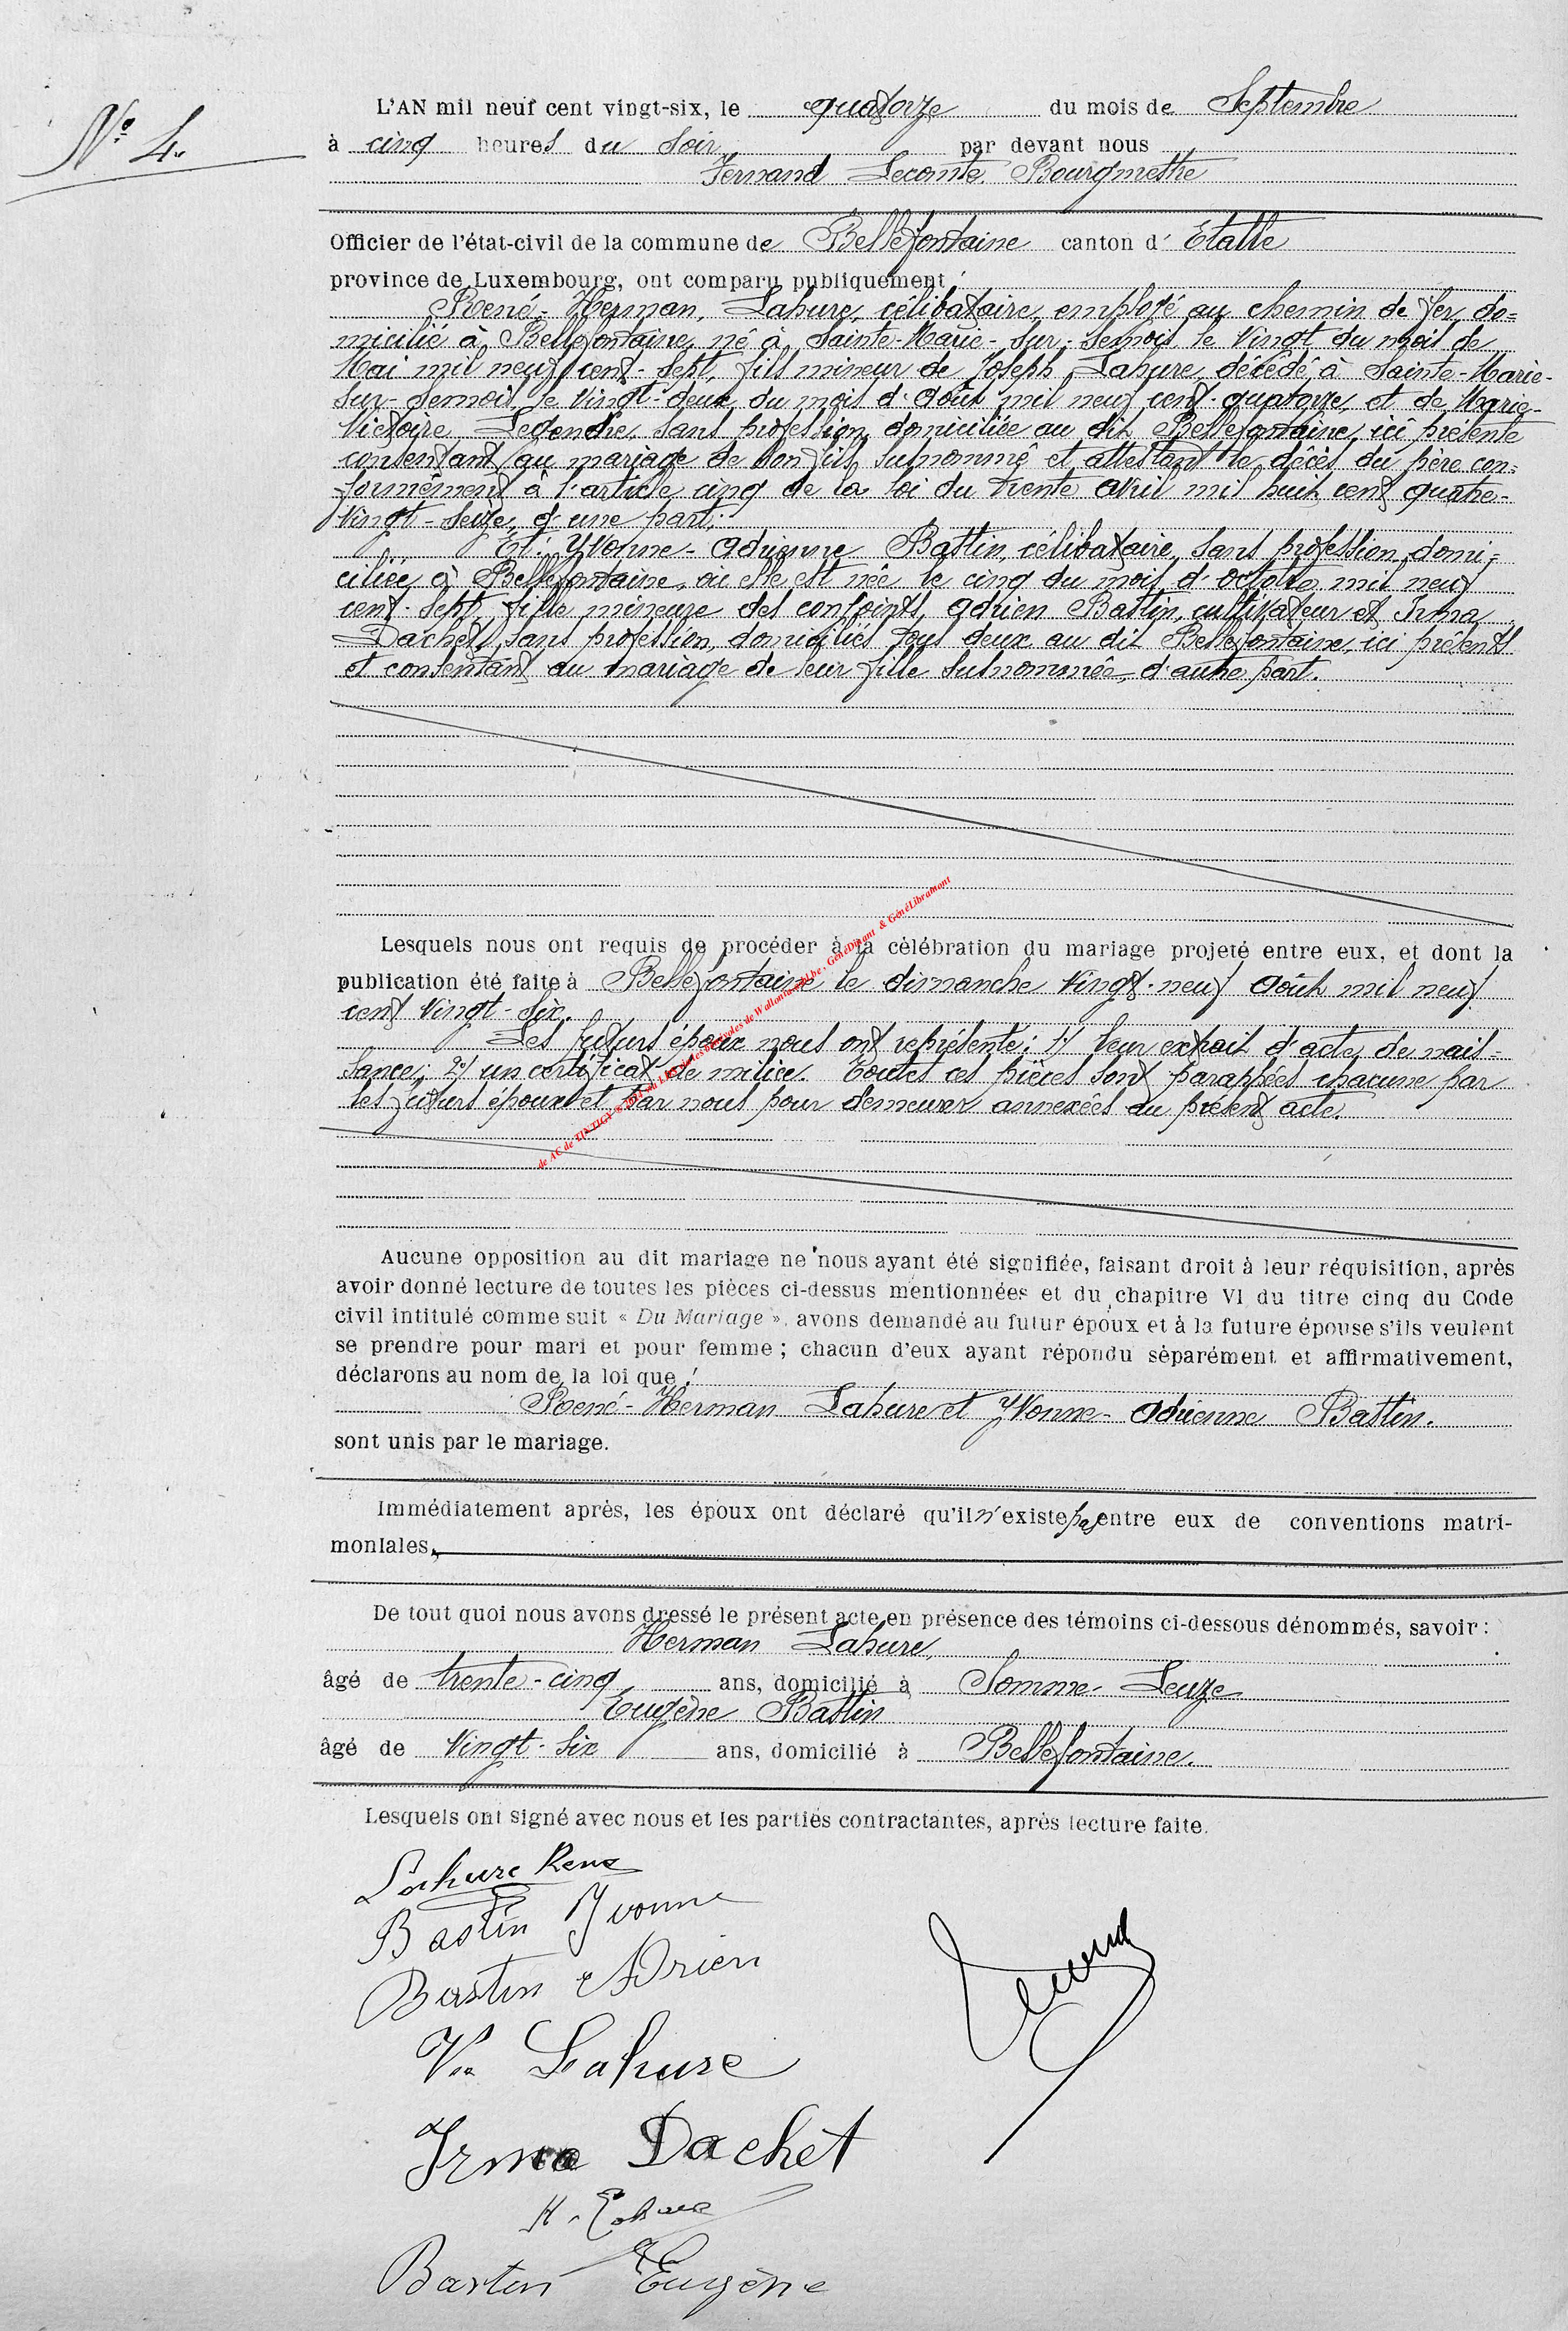 N° 4.
L'AN mil neuf cent vingt-six, le quatorze du mois de Septembre
à cinq heures du soir par devant nous
Fernand Lecomte, Bourgmestre
Officier de l'état-civil de la commune de Bellefontaine canton d' Etalle
province de Luxembourg, ont comparu publiquement :
René-Herman, Lahure, célibataire, employé au chemin de fer, do=
micilié à Bellefontaine, né à Sainte-Marie-sur-Semois le vingt du mois de
Mai mil neuf cent-sept, fils mineur de Joseph Lahure, décédé à Sainte-Marie-
sur-Semois, le vingt-deux du mois d'Août mil neuf cent-quatorze, et de Marie-
Victoire Legendre, sans profession, domiciliée au dit Bellefontaine, ici présente
consentant au mariage de son fils susnommé et attestant le décès du père con=
formément à l'article cinq de la loi du trente avril mil huit cent quatre-
vingt-seize, d'une part;
Et: Yvonne-Adrienne Bastin, célibataire, sans profession, domi-
ciliée à Bellefontaine, où elle est née le cinq du mois d'octobre mil neuf
cent-sept, fille mineure des conjoints, Adrien Bastin, cultivateur et Irma
Dachet, sans profession, domiciliés tous deux au dit Bellefontaine, ici présents
et consentant au mariage de leur fille susnommée, d'autre part.
Lesquels nous ont requis de procéder à la célébration du mariage projeté entre eux, et dont la
publication été faite à Bellefontaine le dimanche vingt-neuf Août mil neuf
cent vingt-six.
Les futurs époux nous ont représenté: 1) leur extrait d'acte de nais=
sance; 2) un certificat de milice. Toutes ces pièces sont paraphées chacune par
les futurs époux et par nous pour demeurer annexées au présent acte.
de AC de TINTIGNY GénéDinant & GénéLibramont
Aucune opposition au dit mariage ne nous ayant été signifiée, faisant droit à leur réquisition, après
avoir donné lecture de toutes les pièces ci-dessus mentionnées et du chapitre VI du titre cinq du Code
civil intitulé comme suit « Du Mariage », avons demandé au futur époux et à la future épouse s'ils veulent
se prendre pour mari et pour femme ; chacun d'eux ayant répondu séparément et affirmativement,
déclarons au nom de la loi que :
René-Herman Lahure et Yvonne-Adrienne Bastin.
sont unis par le mariage.
Immédiatement après, les époux ont déclaré qu'il n'existe pas entre eux de conventions matri-
moniales.
De tout quoi nous avons dressé le présent acte en présence des témoins ci-dessous dénommés, savoir :
Herman Lahure,
âgé de trente-cinq ans, domicilié à Somme-Leuze
Eugène Bastin
âgé de vingt-six ans, domicilié à Bellefontaine.
Lesquels ont signé avec nous et les parties contractantes, après lecture faite.
Lahure René
Bastin Yvonne
Bastin Adrien
Ve Lahure
Irma Dachet
H. Lahure
Bastin Eugène